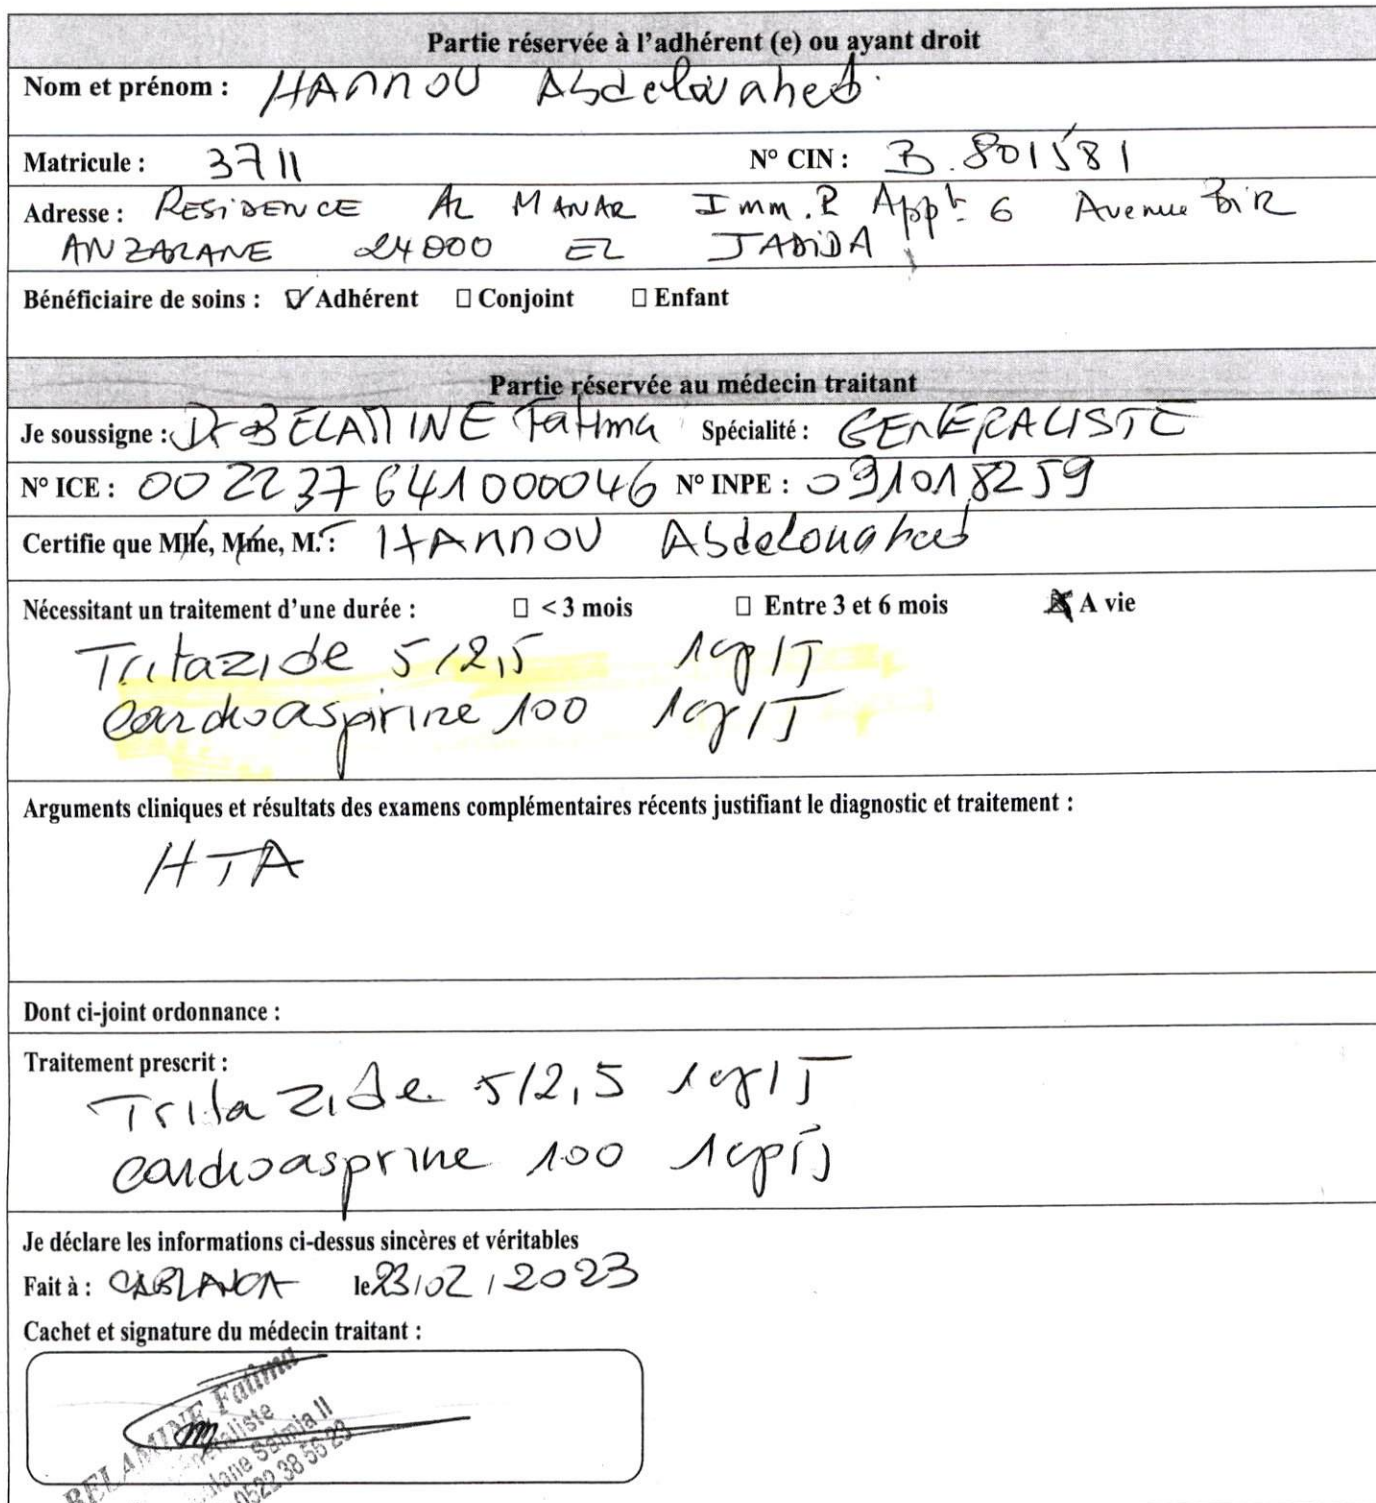 Partie réservée à l'adhérent (e) ou ayant droit
Nom et prénom : HAnnOU Abdelouahed
Matricule : 3711 N° CIN : B.801581
Adresse : RESiDENCE AL MANAR Imm.R Appt 6 Avenue BiR
ANZARANE 24000 EL JADiDA
Bénéficiaire de soins : ☑ Adhérent ☐ Conjoint ☐ Enfant
Partie réservée au médecin traitant
Je soussigne : Dr BELAMINE Fatima Spécialité : GENERALISTE
N° ICE : 002237641000046 N° INPE : 091018259
Certifie que Mlle, Mme, M. : HAnnOU Abdelouahed
Nécessitant un traitement d'une durée : ☐ < 3 mois ☐ Entre 3 et 6 mois ☒ A vie
Tritazide 5/2,5 1cp/J
cardioaspirine 100 1cp/J
Arguments cliniques et résultats des examens complémentaires récents justifiant le diagnostic et traitement :
HTA
Dont ci-joint ordonnance :
Traitement prescrit :
Tritazide 5/2,5 1cp/J
cardioasprine 100 1cp/j
Je déclare les informations ci-dessus sincères et véritables
Fait à : CABLANCA le 23/02/2023
Cachet et signature du médecin traitant :
BELAMINE Fatima
Salmia II
0522 38 56 23